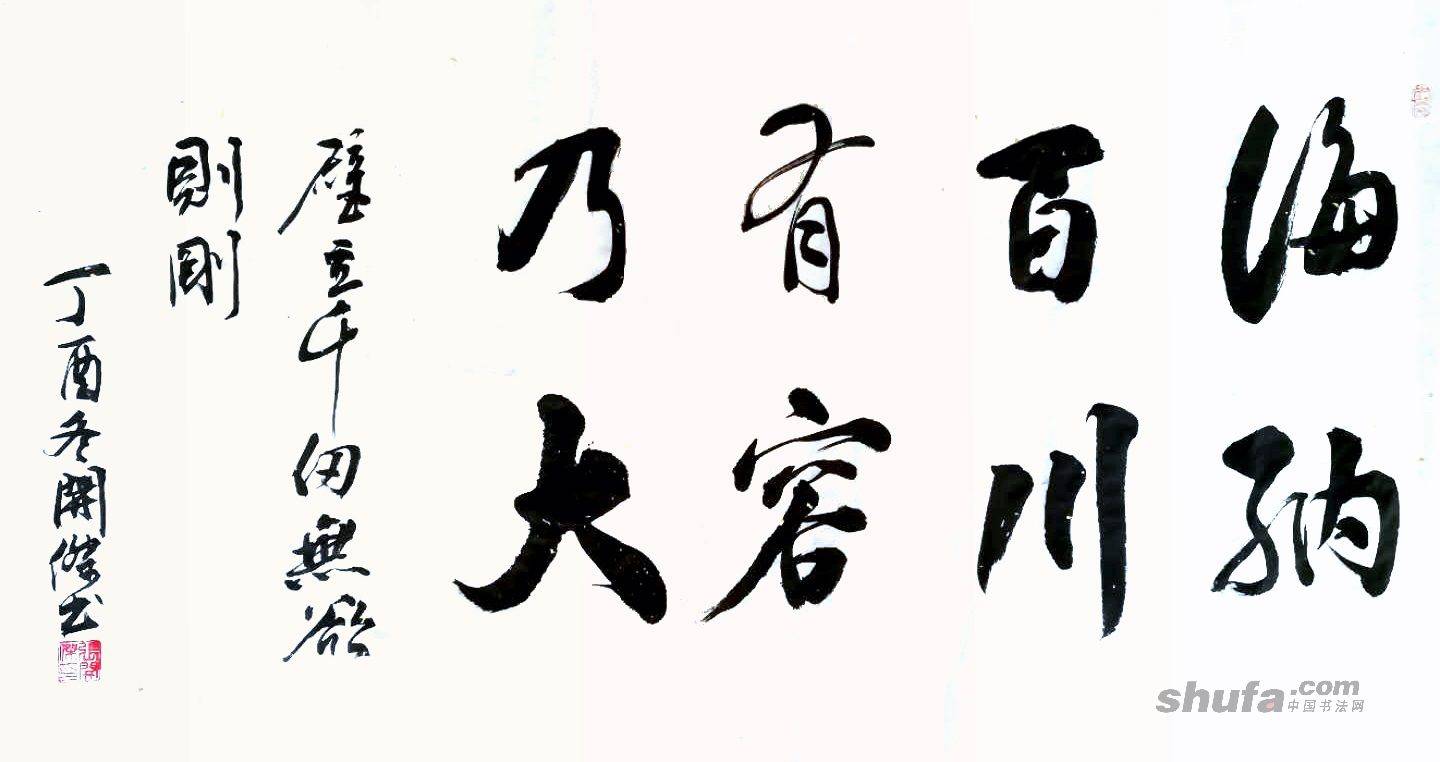 海納
百川
有容
乃大
壁立千仞無欲
則剛
丁酉冬開傑书
張開傑印
shufa.com
中国书法网